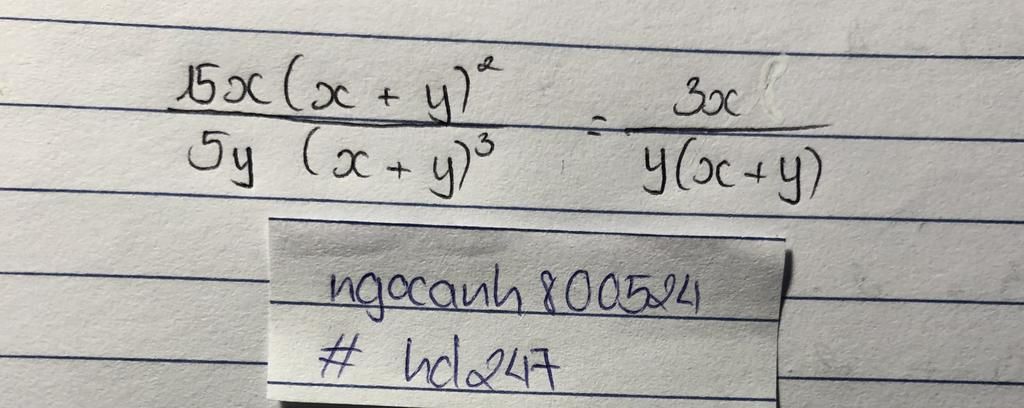 15x(x + y)² / 5y (x + y)³ = 3x / y(x+y)
ngocanh800524
# hd247